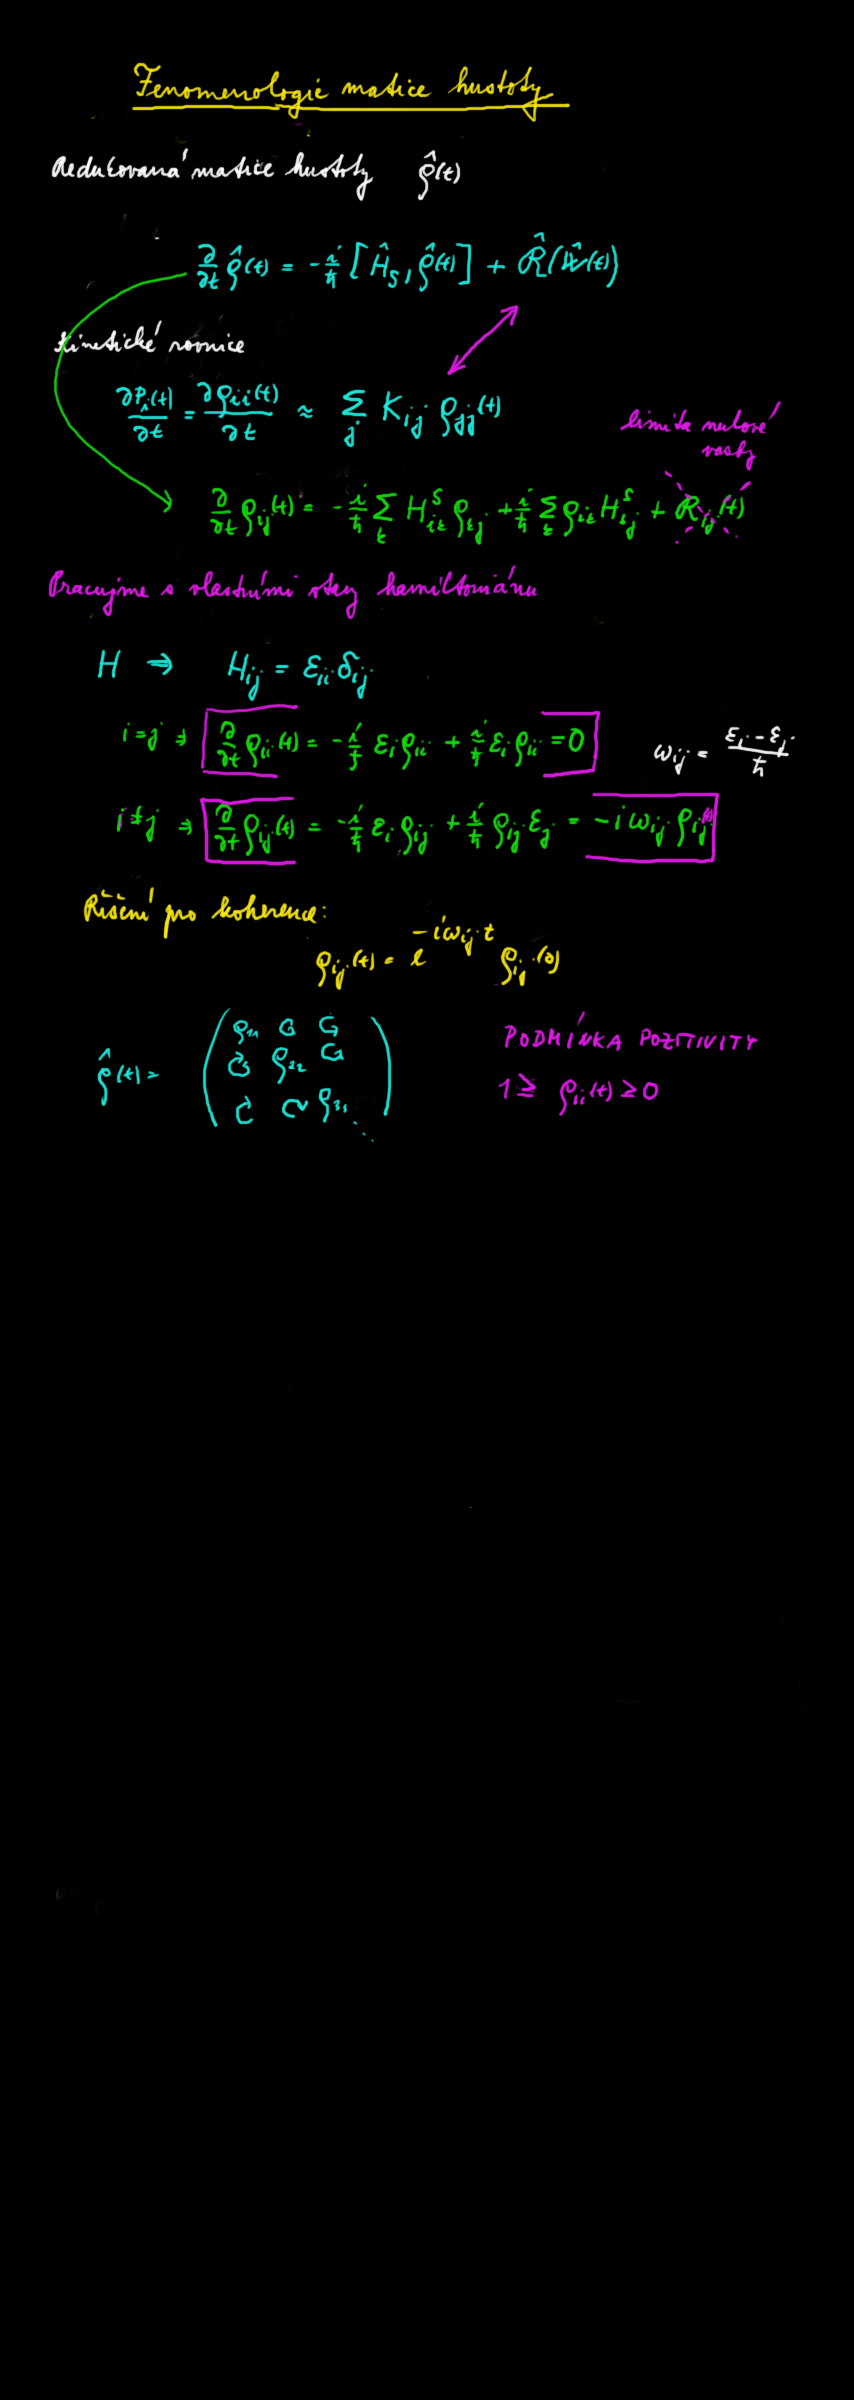 Fenomenologie matice hustoty
Redukovaná matice hustoty ρ̂(t)
∂/∂t ρ̂(t) = -i/ħ [Ĥ_S, ρ̂(t)] + R̂(Ŵ(t))
Kinetické rovnice
∂P_i(t)/∂t = ∂ρ_ii(t)/∂t ≈ Σ_j K_ij ρ_jj(t)
limita nulové
vazby
∂/∂t ρ_ij(t) = -i/ħ Σ_k H^S_ik ρ_kj + i/ħ Σ_k ρ_ik H^S_kj + R_ij(t)
Pracujme s vlastními stavy hamiltoniánu
H ⇒ H_ij = ε_ii δ_ij
i=j ⇒ ∂/∂t ρ_ii(t) = -i/ħ ε_i ρ_ii + i/ħ ε_i ρ_ii = 0
ω_ij = (ε_i - ε_j)/ħ
i≠j ⇒ ∂/∂t ρ_ij(t) = -i/ħ ε_i ρ_ij + i/ħ ρ_ij ε_j = -i ω_ij ρ_ij(t)
Řešení pro koherence:
ρ_ij(t) = e^{-iω_ij t} ρ_ij(0)
ρ̂(t) =
ρ_11
ρ_22
ρ_33 ⋱
PODMÍNKA POZITIVITY
1 ≥ ρ_ii(t) ≥ 0